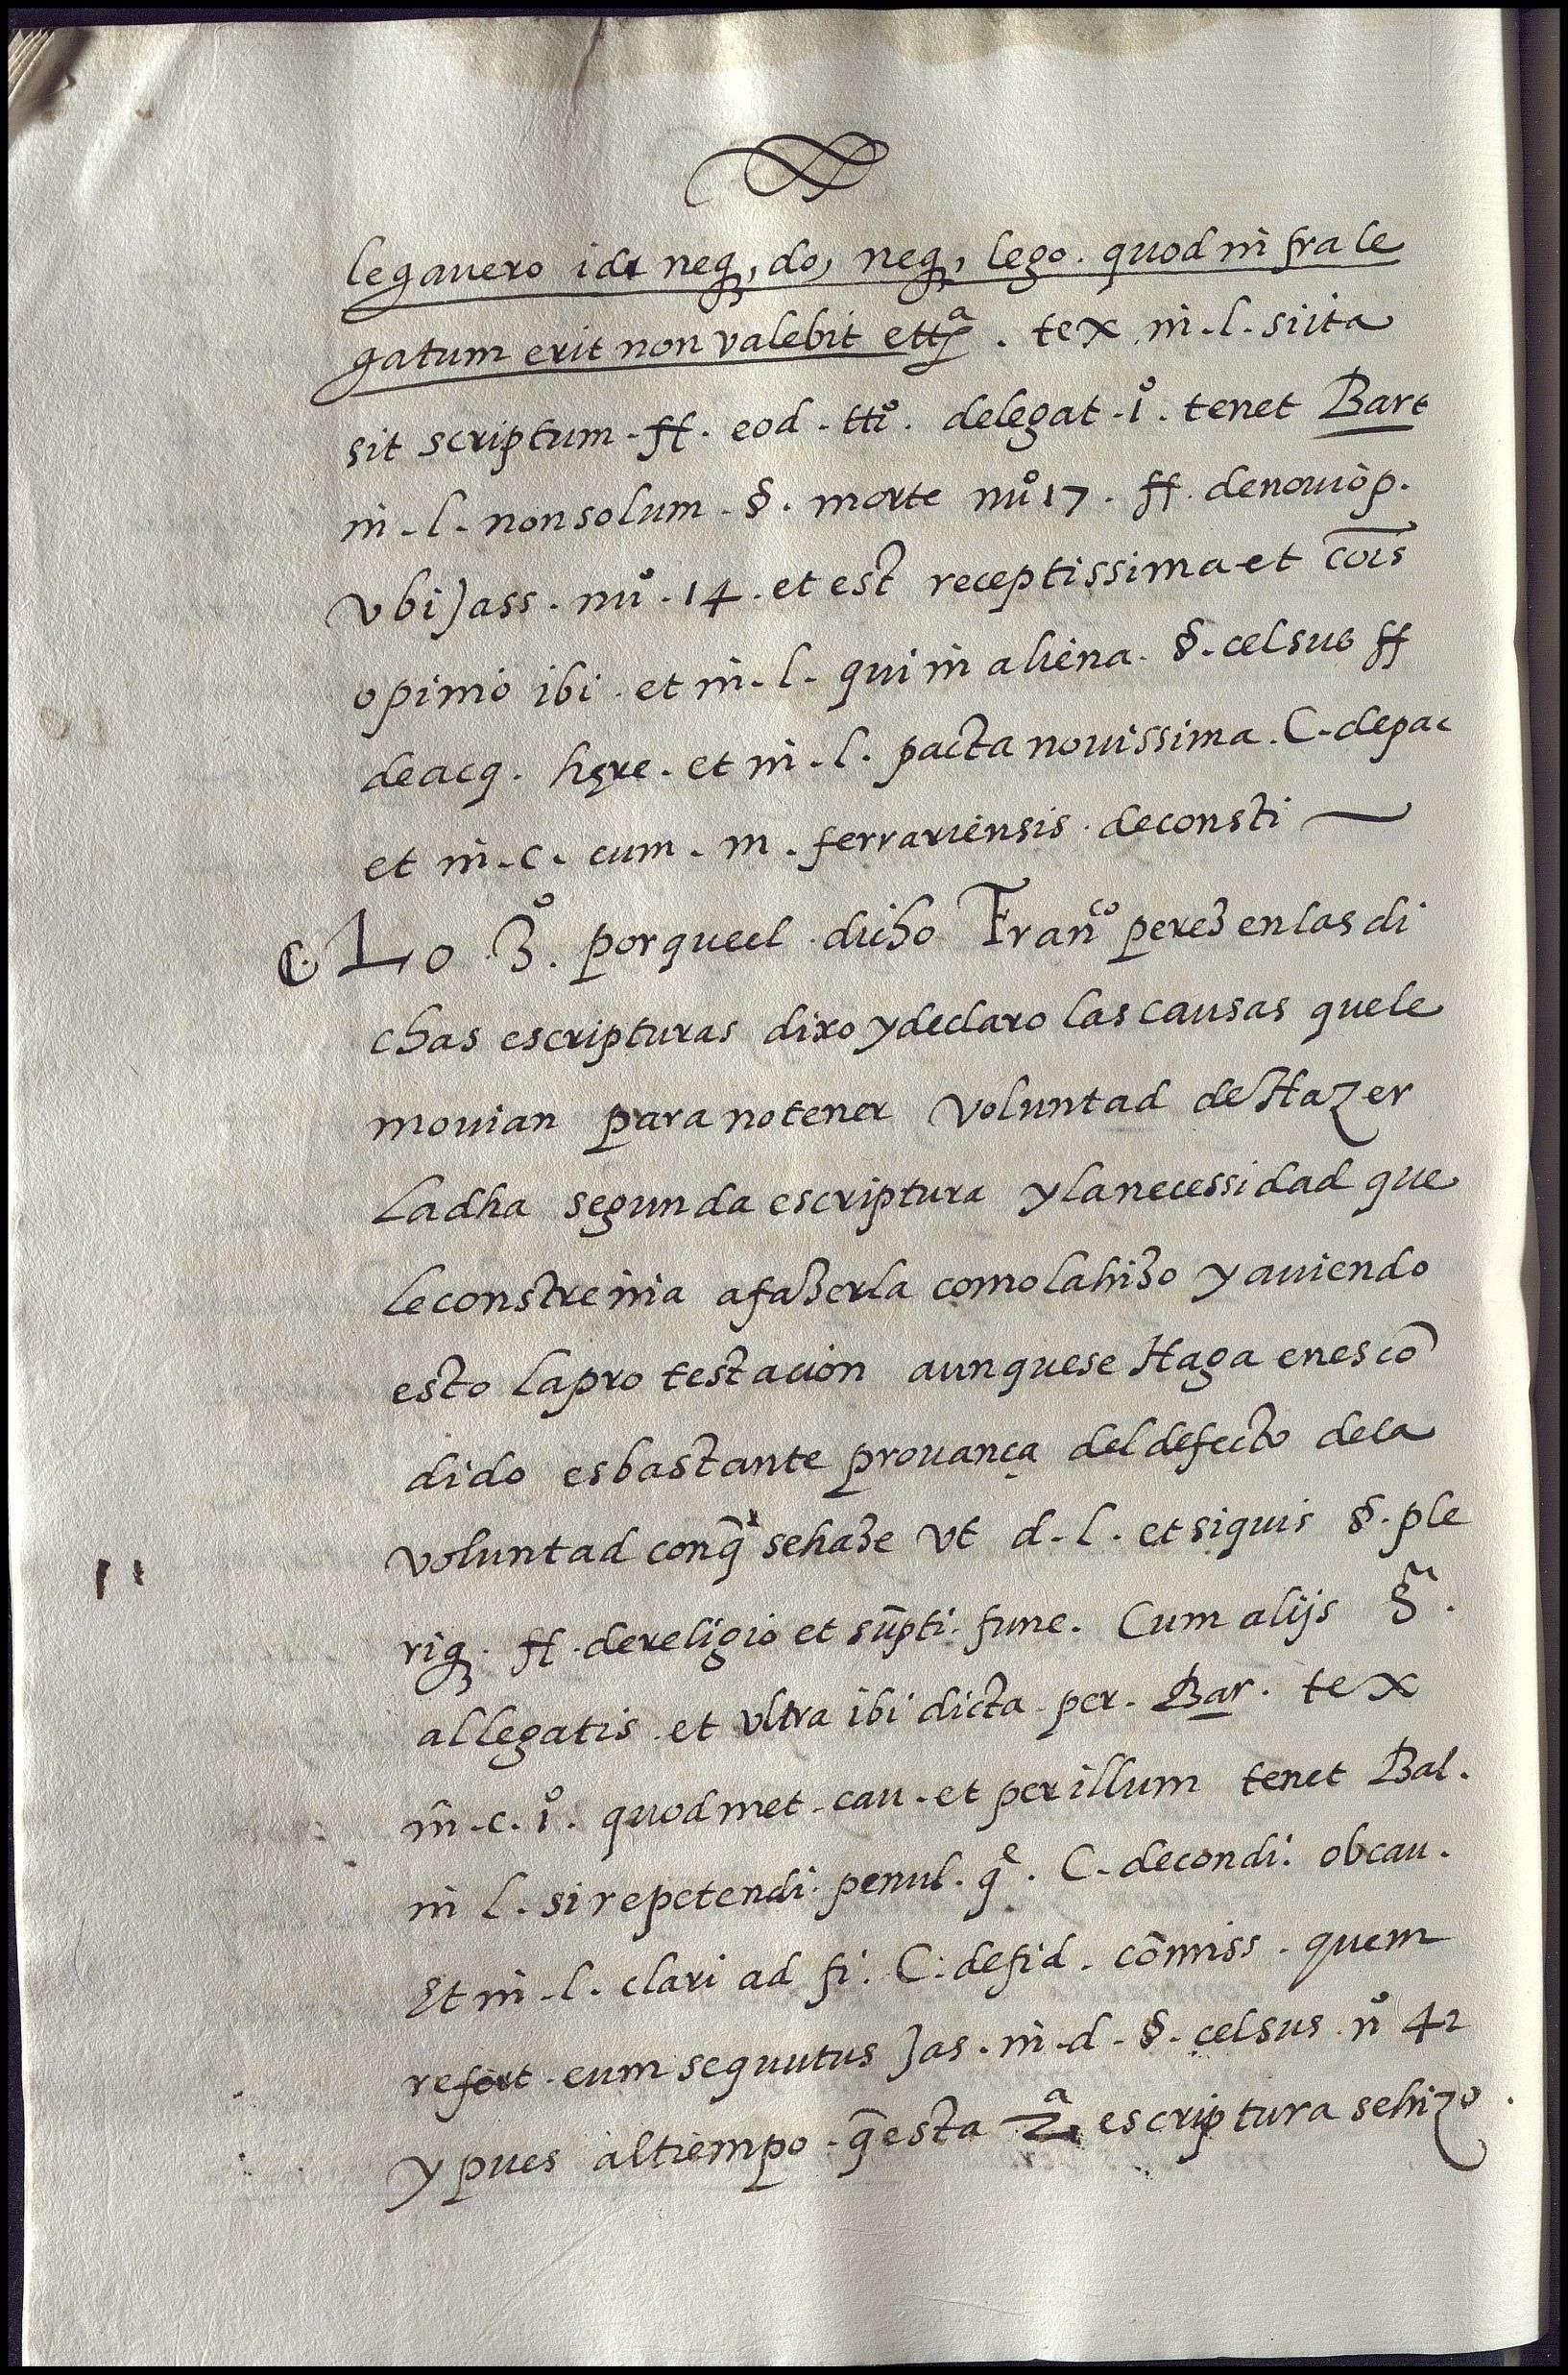 legavero id neq3, do, neq3, lego. quod infrale
gatum erit non valebit ettª. tex in.l. si ita
sit scriptum. ff. eod. tto. delegat. 1º. tenet Bart
in.l. non solum. §. morte nuº 17. ff. denoui op.
vbi Jass. nuº. 14. et est receptissima et cois
opinio ibi. et in.l. qui in aliena. §. celsus ff
deacq. here. et in.l. pacta nouissima. C. depac
et in.c. cum. m. ferrariensis. deconsti
Lo 3º. porqueel dicho Franco perez enlas di
chas escripturas dixo ydeclaro las causas quele
mouian para notener voluntad deHazer
Ladha segunda escriptura ylanecessidad que
leconstreinia afazerla comolahizo yauiendo
esto lapro testacion aunquese Haga enescō
dido esbastante prouança deldefecto dela
voluntad conq̄ sehaze vt d.l. et siquis §. ple
riq3. ff. dereligio et sūpti. fune. Cum alijs §.
allegatis. et vltra ibi dicta per. Bar. tex
in.c.1º. quod met. cau. et per illum tenet Bal.
in l. si repetendi. penul. qe. C. decondi. obcau.
Et in.l. clari ad fi. C. defid. cōmiss. quem
refert. eum sequutus Jas. in.d. §. celsus nº 42
ypues altiempo q̄esta 2ª escriptura sehizo